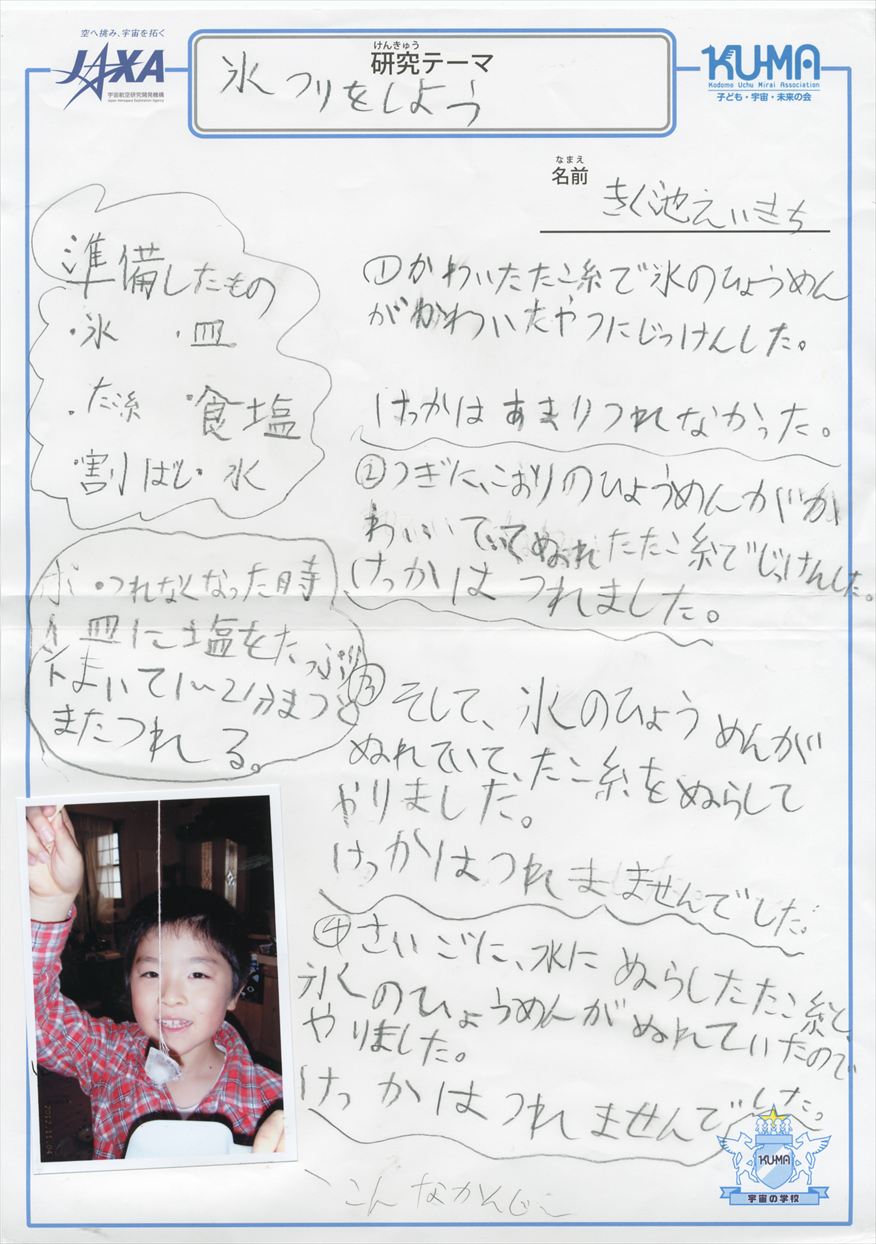 空へ挑み、宇宙を拓く
JAXA
宇宙航空研究開発機構
Japan Aerospace Exploration Agency
けんきゅう
研究テーマ
氷つりをしよう
KU-MA
Kodomo Uchu Mirai Association
子ども・宇宙・未来の会
なまえ
名前
きく池えいきち
準備したもの
・氷 ・皿
・たこ糸 ・食塩
・割りばし・水
ポイント
・つれなくなった時
皿に塩をたっぷり
まいて1〜2分まつと
またつれる。
①かわいたたこ糸で氷のひょうめん
がかわいたやつにじっけんした。
けっかはあまりつれなかった。
②つぎに、こおりのひょうめんがか
わいていてぬれたたこ糸でじっけんした。
けっかはつれました。
③そして、氷のひょうめんが
ぬれていて、たこ糸をぬらして
やりました。
けっかはつれませんでした。
④さいごに、水にぬらしたたこ糸と、
氷のひょうめんがぬれていたので
やりました。
けっかはつれませんでした。
2012.11.04
こんなかんじ〜
KU-MA
宇宙の学校